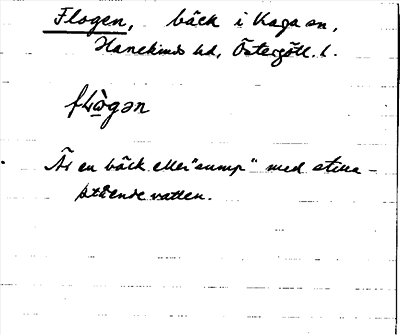 Flogen, bäck i Kaga sn,
Hanekinds hd, Östergötl. l.
flògən
Är en bäck eller "sump" med stilla-
stående vatten.